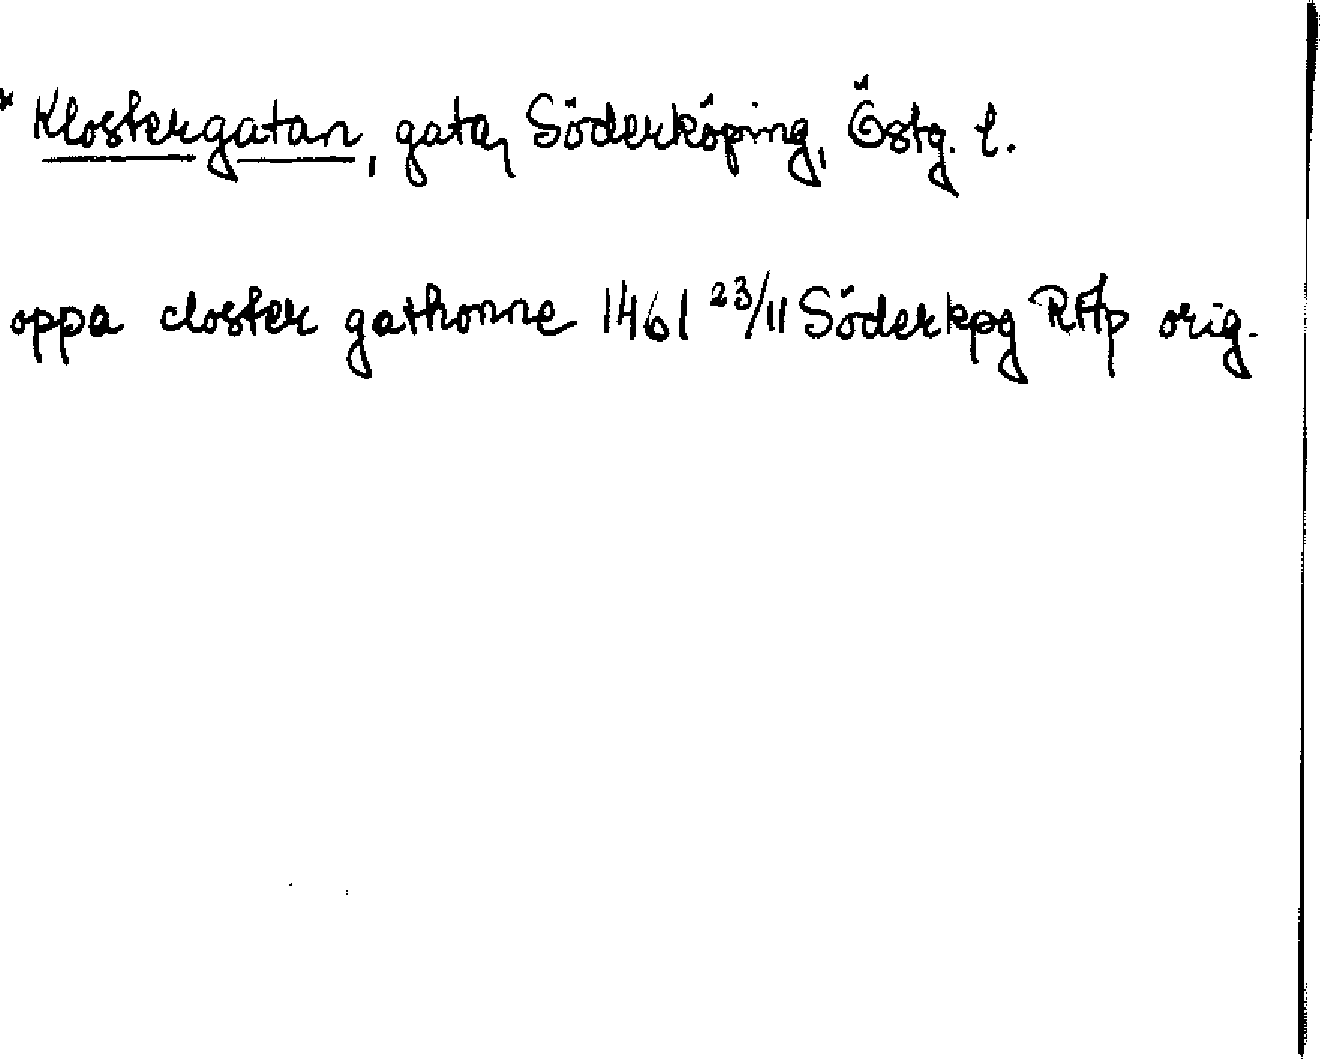 * Klostergatan, gata, Söderköping, Östg. l.
oppa closter gathonne 1461 23/11 Söderkpg RAp orig.